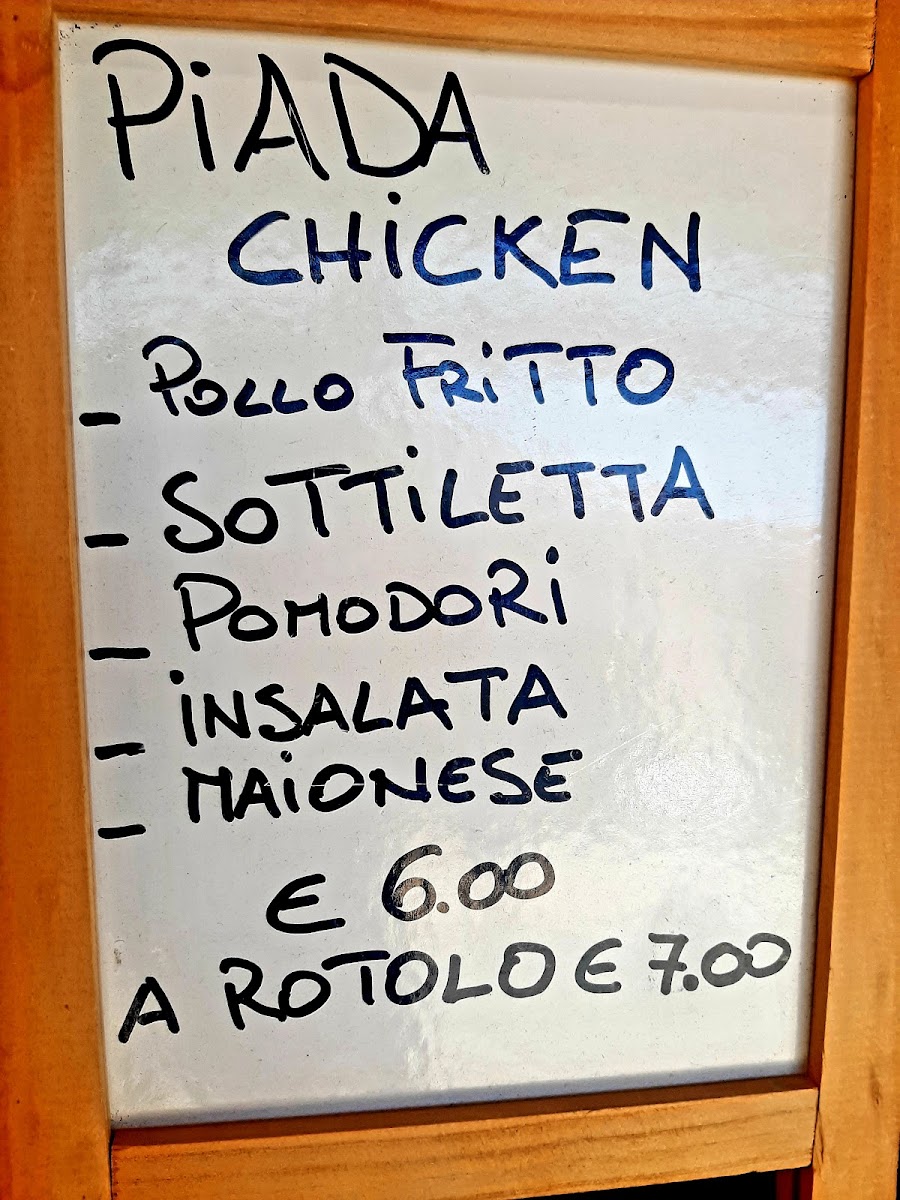 PiADA
CHiCKEN
- POLLO FRiTTO
- SOTTiLETTA
- POMODORi
- iNSALATA
- MAiONESE
€ 6.00
A ROTOLO € 7.00